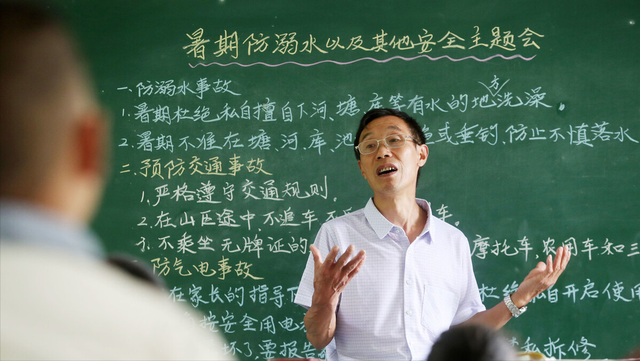 暑期防溺水以及其他安全主题会
一.防溺水事故
1.暑期杜绝私自擅自下河、塘、库等有水的地方洗澡
2.暑期不准在塘、河、库、池 或垂钓,防止不慎落水
二.预防交通事故
1.严格遵守交通规则.
2.在山区途中不追车 车.
3.不乘坐无牌证的 摩托车、农用车和三
防气电事故
在家长的指导 杜绝私自开启使用
按安全用电 
坏了要报告 私拆修